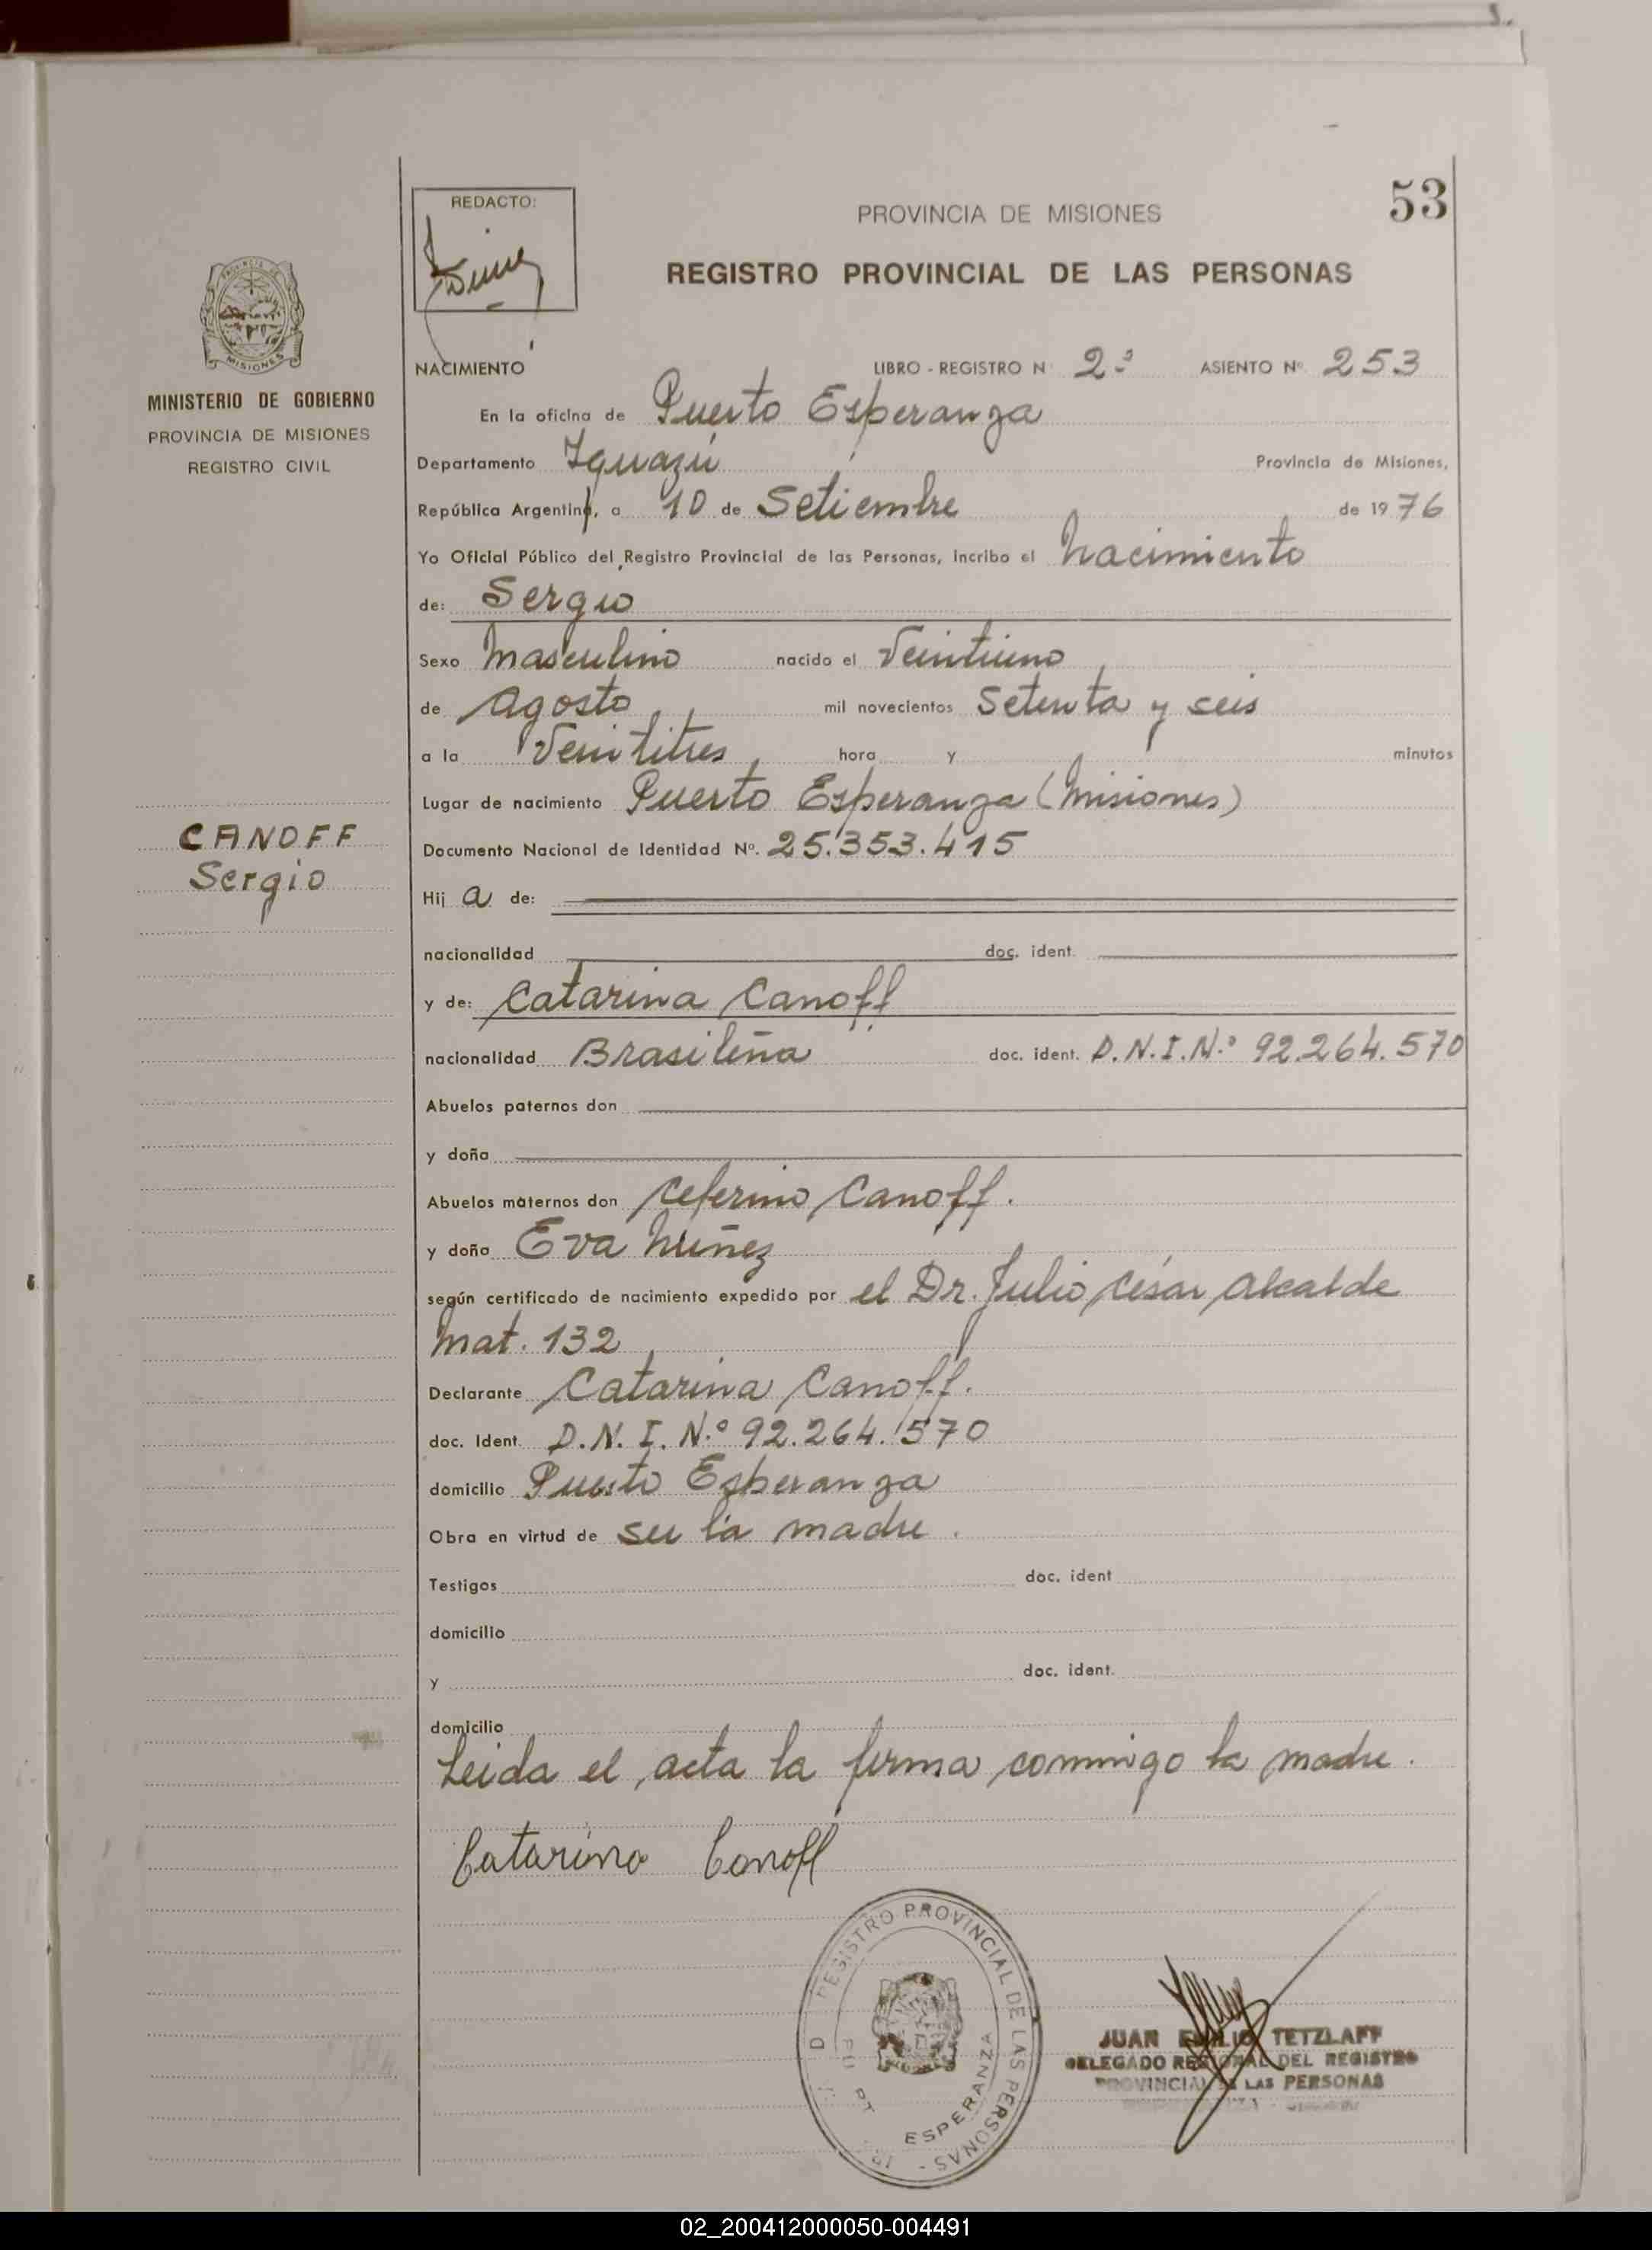 53
REDACTO:
PROVINCIA DE MISIONES
REGISTRO PROVINCIAL DE LAS PERSONAS
MISIONES
MINISTERIO DE GOBIERNO
PROVINCIA DE MISIONES
REGISTRO CIVIL
NACIMIENTO LIBRO - REGISTRO N° 2º ASIENTO Nº 253
En la oficina de Puerto Esperanza
Departamento Iguazú Provincia de Misiones,
República Argentina, a 10 de Setiembre de 1976
Yo Oficial Público del Registro Provincial de las Personas, incribo el Nacimiento
de: Sergio
Sexo Masculino nacido el Veintiuno
de Agosto mil novecientos Setenta y seis
a la Veintitres hora y minutos
Lugar de nacimiento Puerto Esperanza (Misiones)
CANOFF
Sergio
Documento Nacional de Identidad Nº. 25.353.415
Hij a de:
nacionalidad doc. ident.
y de: Catarina Canoff
nacionalidad Brasileña doc. ident. D.N.I.N.º 92.264.570
Abuelos paternos don
y doña
Abuelos maternos don Ceferino Canoff.
y doña Eva Núñez
según certificado de nacimiento expedido por el Dr. Julio César Alcalde
Mat. 132
Declarante Catarina Canoff.
doc. Ident. D.N.I.N.º 92.264.570
domicilio Puerto Esperanza
Obra en virtud de ser la madre.
Testigos doc. ident
domicilio
y doc. ident.
domicilio
Leida el acta la firma conmigo la madre.
Catarina Canoff
REGISTRO PROVINCIAL DE LAS PERSONAS -
ESPERANZA
JUAN EMILIO TETZLAFF
DELEGADO REGIONAL DEL REGISTRO
PROVINCIAL DE LAS PERSONAS
02_200412000050-004491